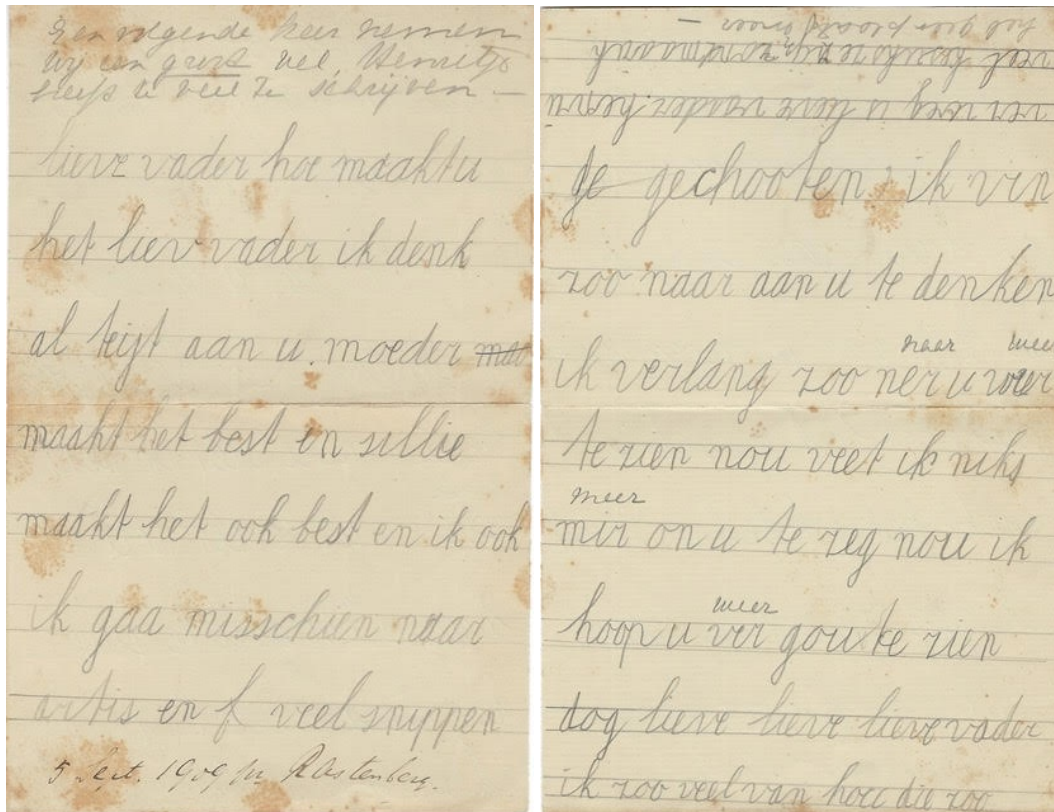 Een volgende keer nemen
wij een groot vel, Henrietje
te veel te schrijven —
lieve vader hoe maakt u
het liev vader ik denk
al teijt aan u. moeder maa
maakt het best en sillie
maakt het ook best en ik ook
ik gaa misschien naar
artis en f veel snippen
5 Sept. 1909
ge gechooten ik vin
zoo naar aan u te denken
naar weer
ik verlang zoo ner u weer
te zien nou veet ik niks
meer
mir on u te zeg nou ik
weer
hoop u ver gou te zien
dog lieve lieve lieve vader
ik zoo veel van hou die zoo
ver weg is lieve vader
veel
het geen plaats meer —